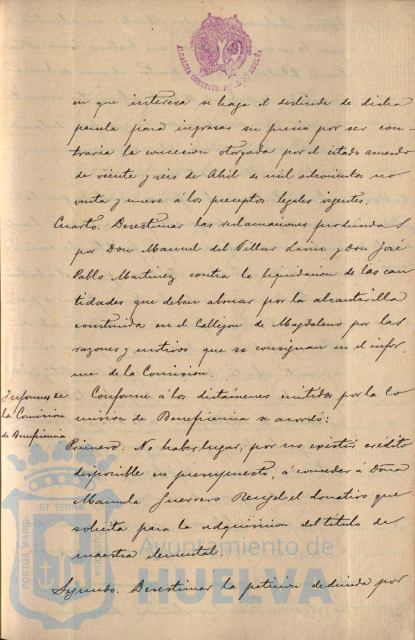 ALCALDIA CONSTITUCIONAL DE HUELVA
en que interesa se haga el deslinde de dicha
parcela para ingresar su precio por ser con
traria la concesion otorgada por el citado acuerdo
de veinte y seis de Abril de mil ochocientos no
venta y nueve á los preceptos legales vigentes.
Cuarto. Desestimar las reclamaciones producidas
por Don Manuel del Villar León y Don José
Pablo Martinez contra la liquidacion de las can
tidades que deben abonar por la alcantarilla
construida en el Callejon de Magdalena por las
razones y motivos que se consignan en el infor
me de la Comision.
Informes de
la Comision
de Beneficencia
Conforme á los dictámenes emitidos por la Co
mision de Beneficencia se acordó:
Primero. No haber lugar, por no existir crédito
disponible en presupuesto, á conceder á Doña
Manuela Guerrero Rengel el donativo que
solicita para la adquisicion del titulo de
maestra elemental
Segundo. Desestimar la peticion deducida por
PORTUS MARIS
ET TERRÆ
Ayuntamiento de
HUELVA